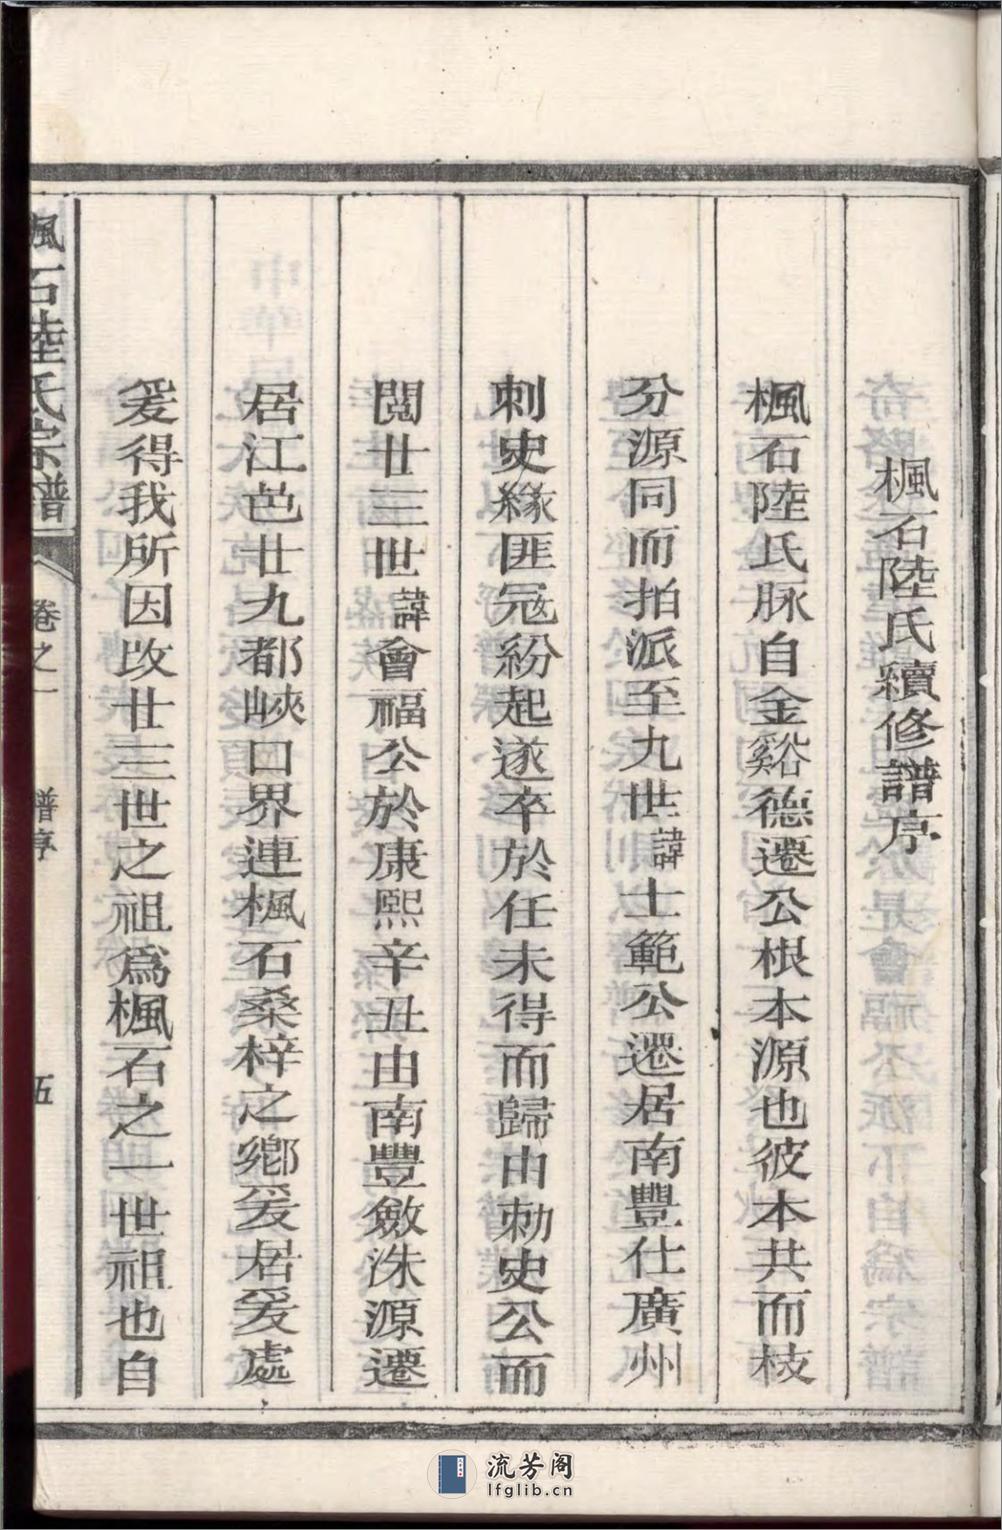 楓石陸氏續修譜序
楓石陸氏脉自金谿德遷公根本源也彼本共而枝
分源同而拍派至九世諱士範公遷居南豐仕廣州
刺史緣匪冦紛起遂卒於任未得而歸由勅史公而
閱廿三世諱會福公於康熙辛丑由南豐斂洙源遷
居江邑廿九都峽口界連楓石桑梓之鄉爰居爰處
爰得我所因攺廿三世之祖爲楓石之一世祖也自
楓石陸氏宗譜
卷之一
譜序
五
流芳阁
lfglib.cn